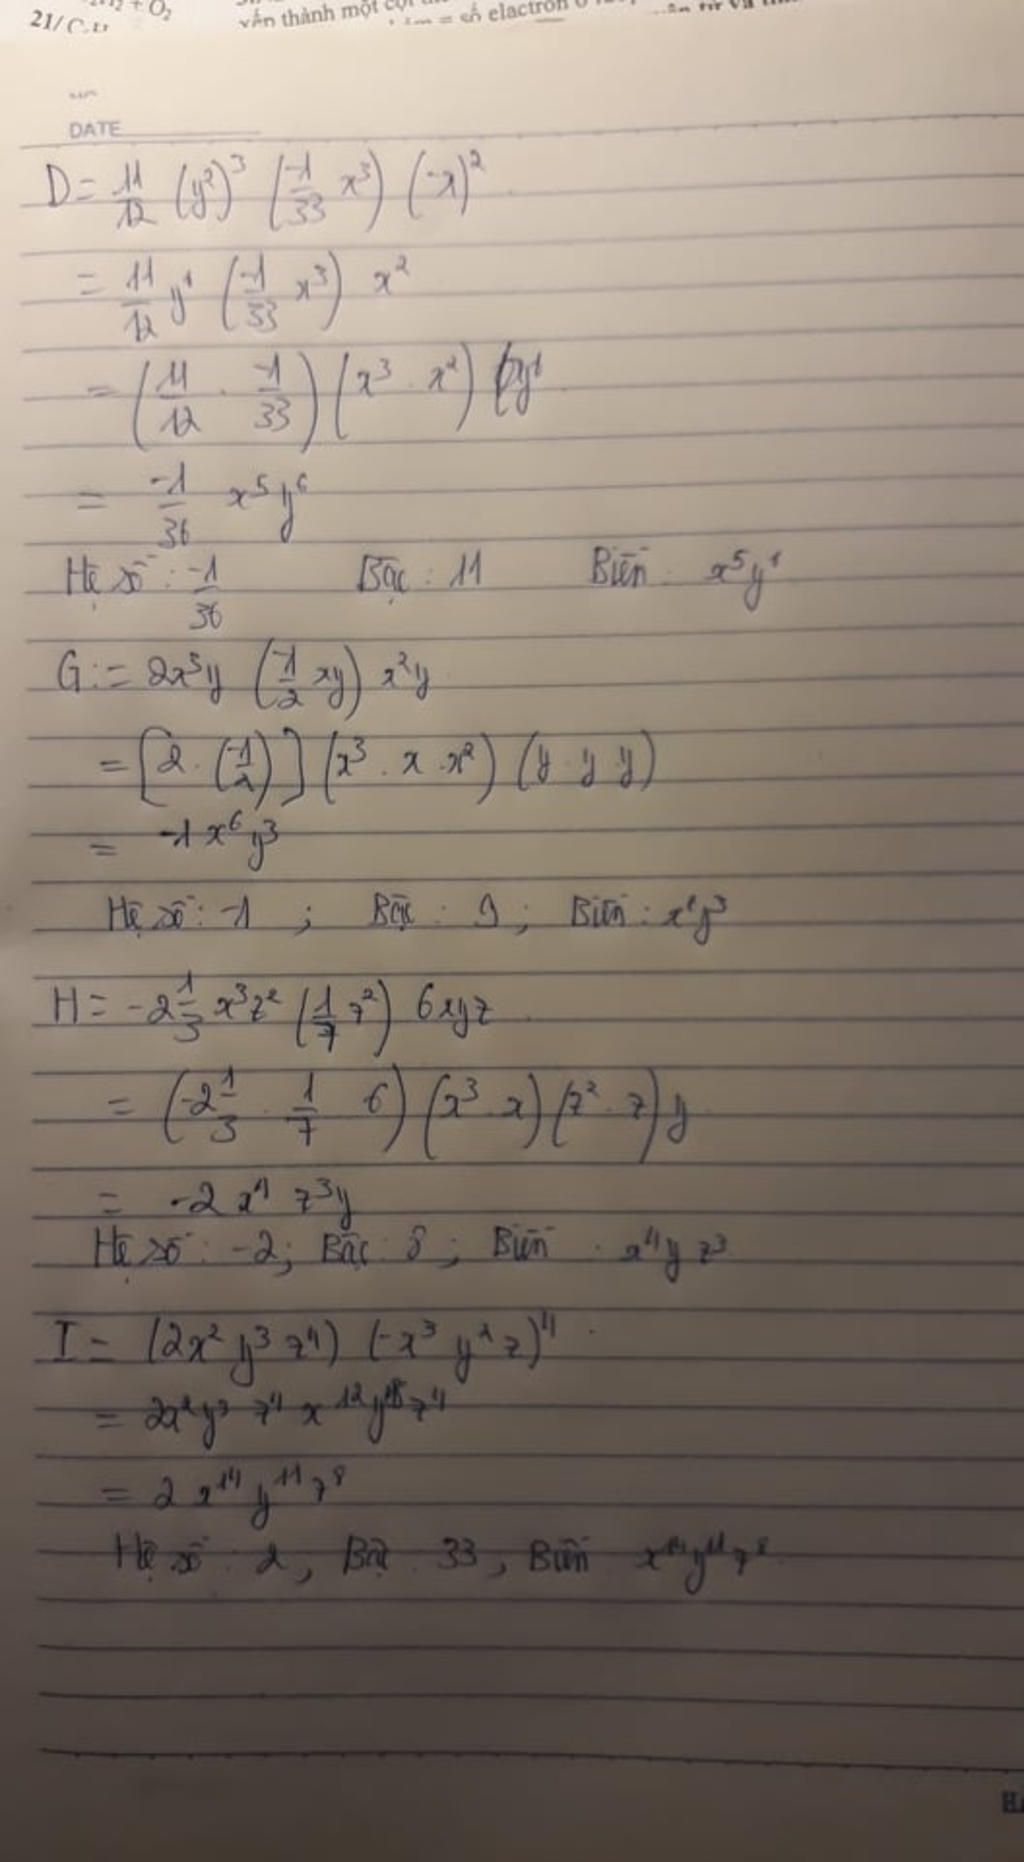 21/
+ O₂
thành một
= số elactron
DATE
D = 11/12 (y²)³ (-1/33 x³) (-x)²
= 11/12 y⁶ (-1/33 x³) x²
= (11/12 . -1/33) (x³ . x²) y⁶
= -1/36 x⁵y⁶
Hệ số : -1/36 Bậc : 11 Biến : x⁵y⁶
G := 2x³y (-1/2 xy) x²y
= [2 . (-1/2)] (x³ . x . x²) (y . y . y)
= -1 x⁶y³
Hệ số : -1 ; Bậc : 9 ; Biến : x⁶y³
H = -2 1/3 x³z² (1/7 z²) 6xyz
= (-2 1/3 . 1/7 6) (x³ . x) (z² . z) y
= -2 x⁴ z³y
Hệ số : -2 ; Bậc : 8 ; Biến : x⁴y z³
I = (2x² y³ z⁴) (-x³ y² z)⁴
= 2x²y³ z⁴ x¹²y⁸z⁴
= 2 x¹⁴ y¹¹ z⁸
Hệ số : 2 , Bậc : 33 , Biến x¹⁴y¹¹z⁸